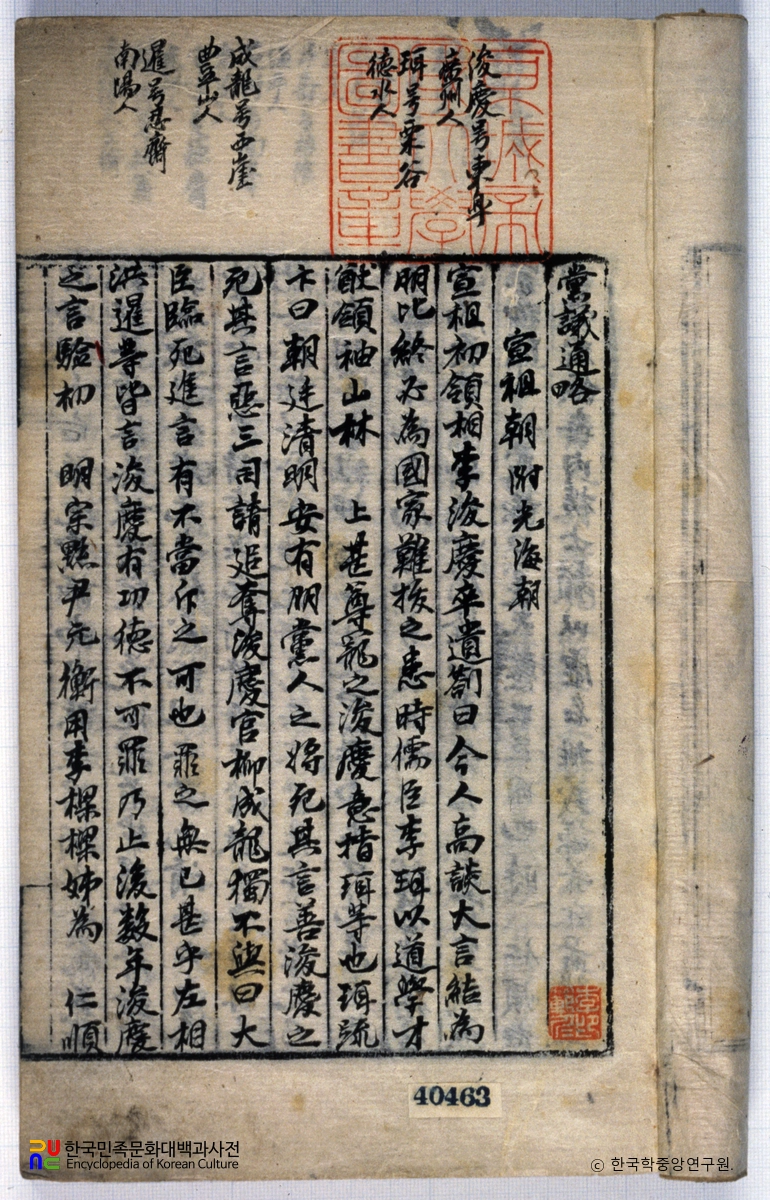 浚慶号東皐
廣州人
珥号栗谷
德水人
成龍号西崖
豊山人
暹号忍齋
南陽人
黨議通略
宣祖朝 附光海朝
宣祖初領相李浚慶卒遺劄曰今人高談大言結為
朋比終必為國家難拔之患時儒臣李珥以道學才
猷領袖山林 上甚尊寵之浚慶意指珥等也珥疏
卞曰朝廷清明安有朋黨人之將死其言善浚慶之
死其言惡三司請追奪浚慶官柳成龍獨不與曰大
臣臨死進言有不當斥之可也罪之無已甚乎左相
洪暹等皆言浚慶有功德不可罪乃止後数年浚慶
之言驗初 明宗黜尹元衡用李樑樑姊為 仁順
40463
한국민족문화대백과사전
Encyclopedia of Korean Culture
ⓒ 한국학중앙연구원.